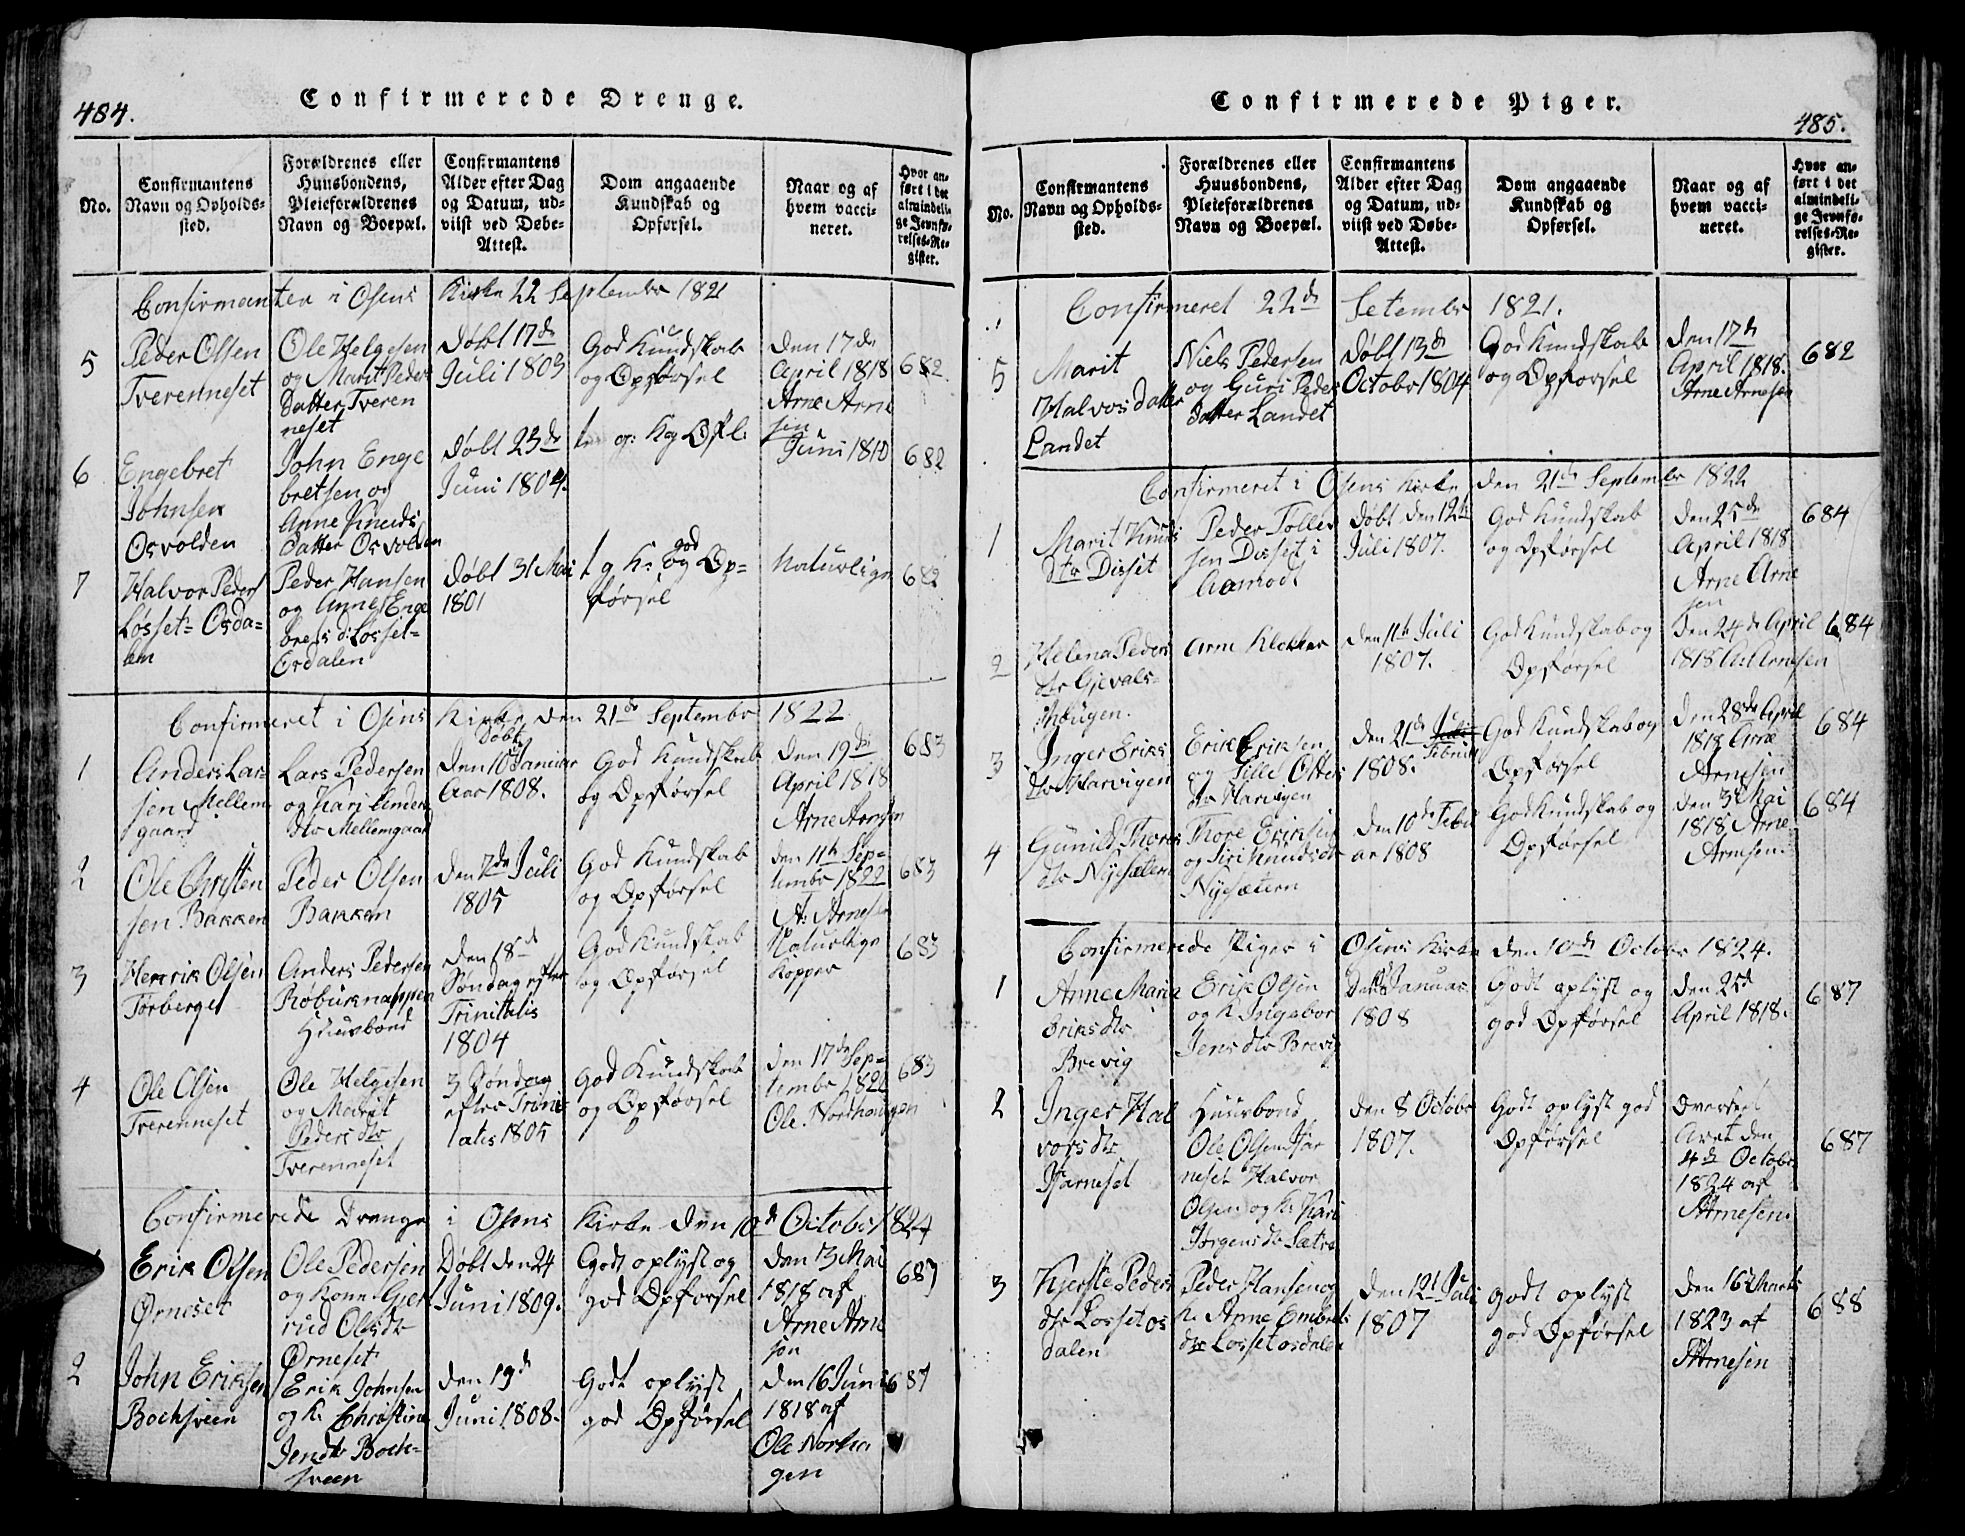 484.
Confirmerede Drenge.
No.
Confirmantens
Navn og Opholds-
sted.
Forældrenes eller
Huusbondens,
Pleieforældrenes
Navn og Boepæl.
Confirmantens
Alder efter Dag
og Datum, ud-
viist ved Døbe-
Attest.
Dom angaaende
Kundskab og
Opførsel.
Naar og af
hvem vacci-
neret.
Hvor an-
ført i det
almindeli-
ge Jevnfø-
relses-Re-
gister.
Confirmanter i Osens Kirke 22 September 1821
5
Peder Olsen
Tverenneset
Ole Helgesen
og Marit Peders
Datter Tveren
neset
Døbt 17de
Juli 1803
God Kundskab
og Opførsel
Den 17de
April 1818
Arne Arne
sen
682
6
Engebret
Johnsen
Osvolden
John Enge
bretsen og
Anne Knuds
Datter Osvolden
Døbt 23de
Juni 1804.
Juni 1810
682
7
Halvor Peders
Løsset- Osda-
len
Peder Hansen
og Anne Enge
brets d: Løsset-
Osdalen
Døbt 31 Mai
1801
god
og Op-
førsel
Naturlige
682
Confirmeret i Osens Kirke den 21de September 1822
1
Anders Lar-
sen Mellem
gaard
Lars Pedersen
og Kari Anders
dtr Mellemgaard
Døbt
Den 10de Januar
Aar 1808.
God Kundskab
og Opførsel
Den 19de
April 1818
Arne Arnesen
683
2
Ole Christen
sen Bakken
Peder Olsen
Bakken
Den 7de Juli
1805
God Kundskab
og Opførsel
Den 11te Sep-
tembr 1822
A: Arnesen
683
3
Henrik Olsen
Torberget
Anders Pedersen
Røbuknappen
Huusbond
Den 18de
Søndag efter
Trinitatis
1804
God Kundskab
og Opførsel
Naturlige
Kopper
683
4
Ole Olsen
Tverenneset
Ole Helgesen
og Marit
Peders dtr
Tverenneset
3 Søndag
efter Trini
tatis 1805
God Kundskab
og Opførsel
Den 17de Sep-
tembr 182
Ole Nordhaugen
683
Confirmerede Drenge i Osens Kirke den 10de October 1824
Erik Olsen
Ørneset
Ole Pedersen
og Kone Gjert
rud Olsdtr
Ørneset
Døbt den 24
Juni 1809.
Godt oplyst og
god Opførsel
Den 13 Mai
1818 af
Arne Arne
sen
687
2
John Eriksen
Bochsveen
Erik Johnsen
og K. Christine
Jensdtr Boch-
sveen
Den 19de
Juni 1808.
Godt oplyst
god Opførsel
Den 16 Juni
1818 af
Ole Northa
gen
687
Confirmerede Piger.
485.
No.
Confirmantens
Navn og Opholds-
sted.
Forældrenes eller
Huusbondens,
Pleieforældrenes
Navn og Boepæl.
Confirmantens
Alder efter Dag
og Datum, ud-
viist ved Døbe-
Attest.
Dom angaaende
Kundskab og
Opførsel.
Naar og af
hvem vacci-
neret.
Hvor an-
ført i det
almindeli-
ge Jevnfø-
relses-Re-
gister.
Confirmeret 22de Setembr 1821.
5
Marit
Halvosdatter
Landet
Niels Pedersen
og Guri Peders
Datter Landet
Døbt 13de
Octobr 1804
God Kundskab
og Opførsel
Den 17de
April 1818.
Arne Arnesen
682
Confirmeret i Osens Kirke den 21de September 1822
1
Marit Knuds
dtr Disset
Peder Tolles
sen Disset i
Aamodt
Døbt den 12te
Juli 1807.
God Kundskab
og Opførsel
Den 25de
April 1818
Arne Arne
sen
684
2
Helena Peders
dtr Gjevals-
haugen.
Arne Klokker
Den 11te Juli
1807.
God Kundskab og
Opførsel
Den 24de April
1818 A: Arnesen
684
3
Inger Eriks
dtr Harvigen
Erik Eriksen
og Sille Otters
dtr Harvigen
Den 21de Juli
Februar
1808.
God Kundskab og
Opførsel
Den 28de April
1818 Arne
Arnesen
684
4
Gunild Thores
dtr Nysætern
Thore Eriksen
og Siri Knudsdtr
Nysætern
Den 10de Febru
ar 1808
God Kundskab og
Opførsel
Den 3 Mai
1818 Arne
Arnesen.
684
Confirmerede Piger i Osens Kirke den 10de Octobr 1824.
1
Anne Maria
Eriksdtr
Brevig
Erik Olsen
og K Ingebor
Jensdtr Brevig
Januar
1808
Godt oplyst og
god Opførsel
Den 25d
April 1818.
687
2
Inger Hal
vorsdtr
Hjarneset
Huusbond
Ole Olsen Hjar
neset Halvor
Olsen og K: Kari
Jørgensdtr Sætre
Den 8 Octobr
1807.
Godt oplyst god
Opførsel
Aret den
4de Octobr
1824 af
AArnesen.
687
3
Kjerste Peders
dtr Løsset os
dalen
Peder Hansen og
K. Anne Embrets
dtr Løssetosdalen
Den 12t Juli
1807
godt oplyst
god Opførsel
Den 16 Marts
1823 af
AArnesen
688